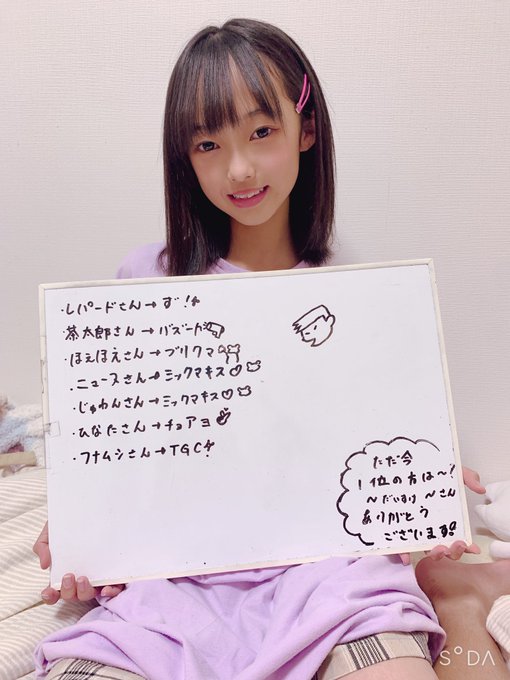 ・レパードさん→ず!
・茶太郎さん→バズーカ
・ほえほえさん→プリクマ
・ニュースさん→ミックマキス♡
・じゅわんさん→ミックマキス♡
・ひなたさん→チョアヨ
・フナムシさん→TGC
ただ今
1位の方は〜?
〜だいすけ〜さん
ありがとう
ございます!
SODA